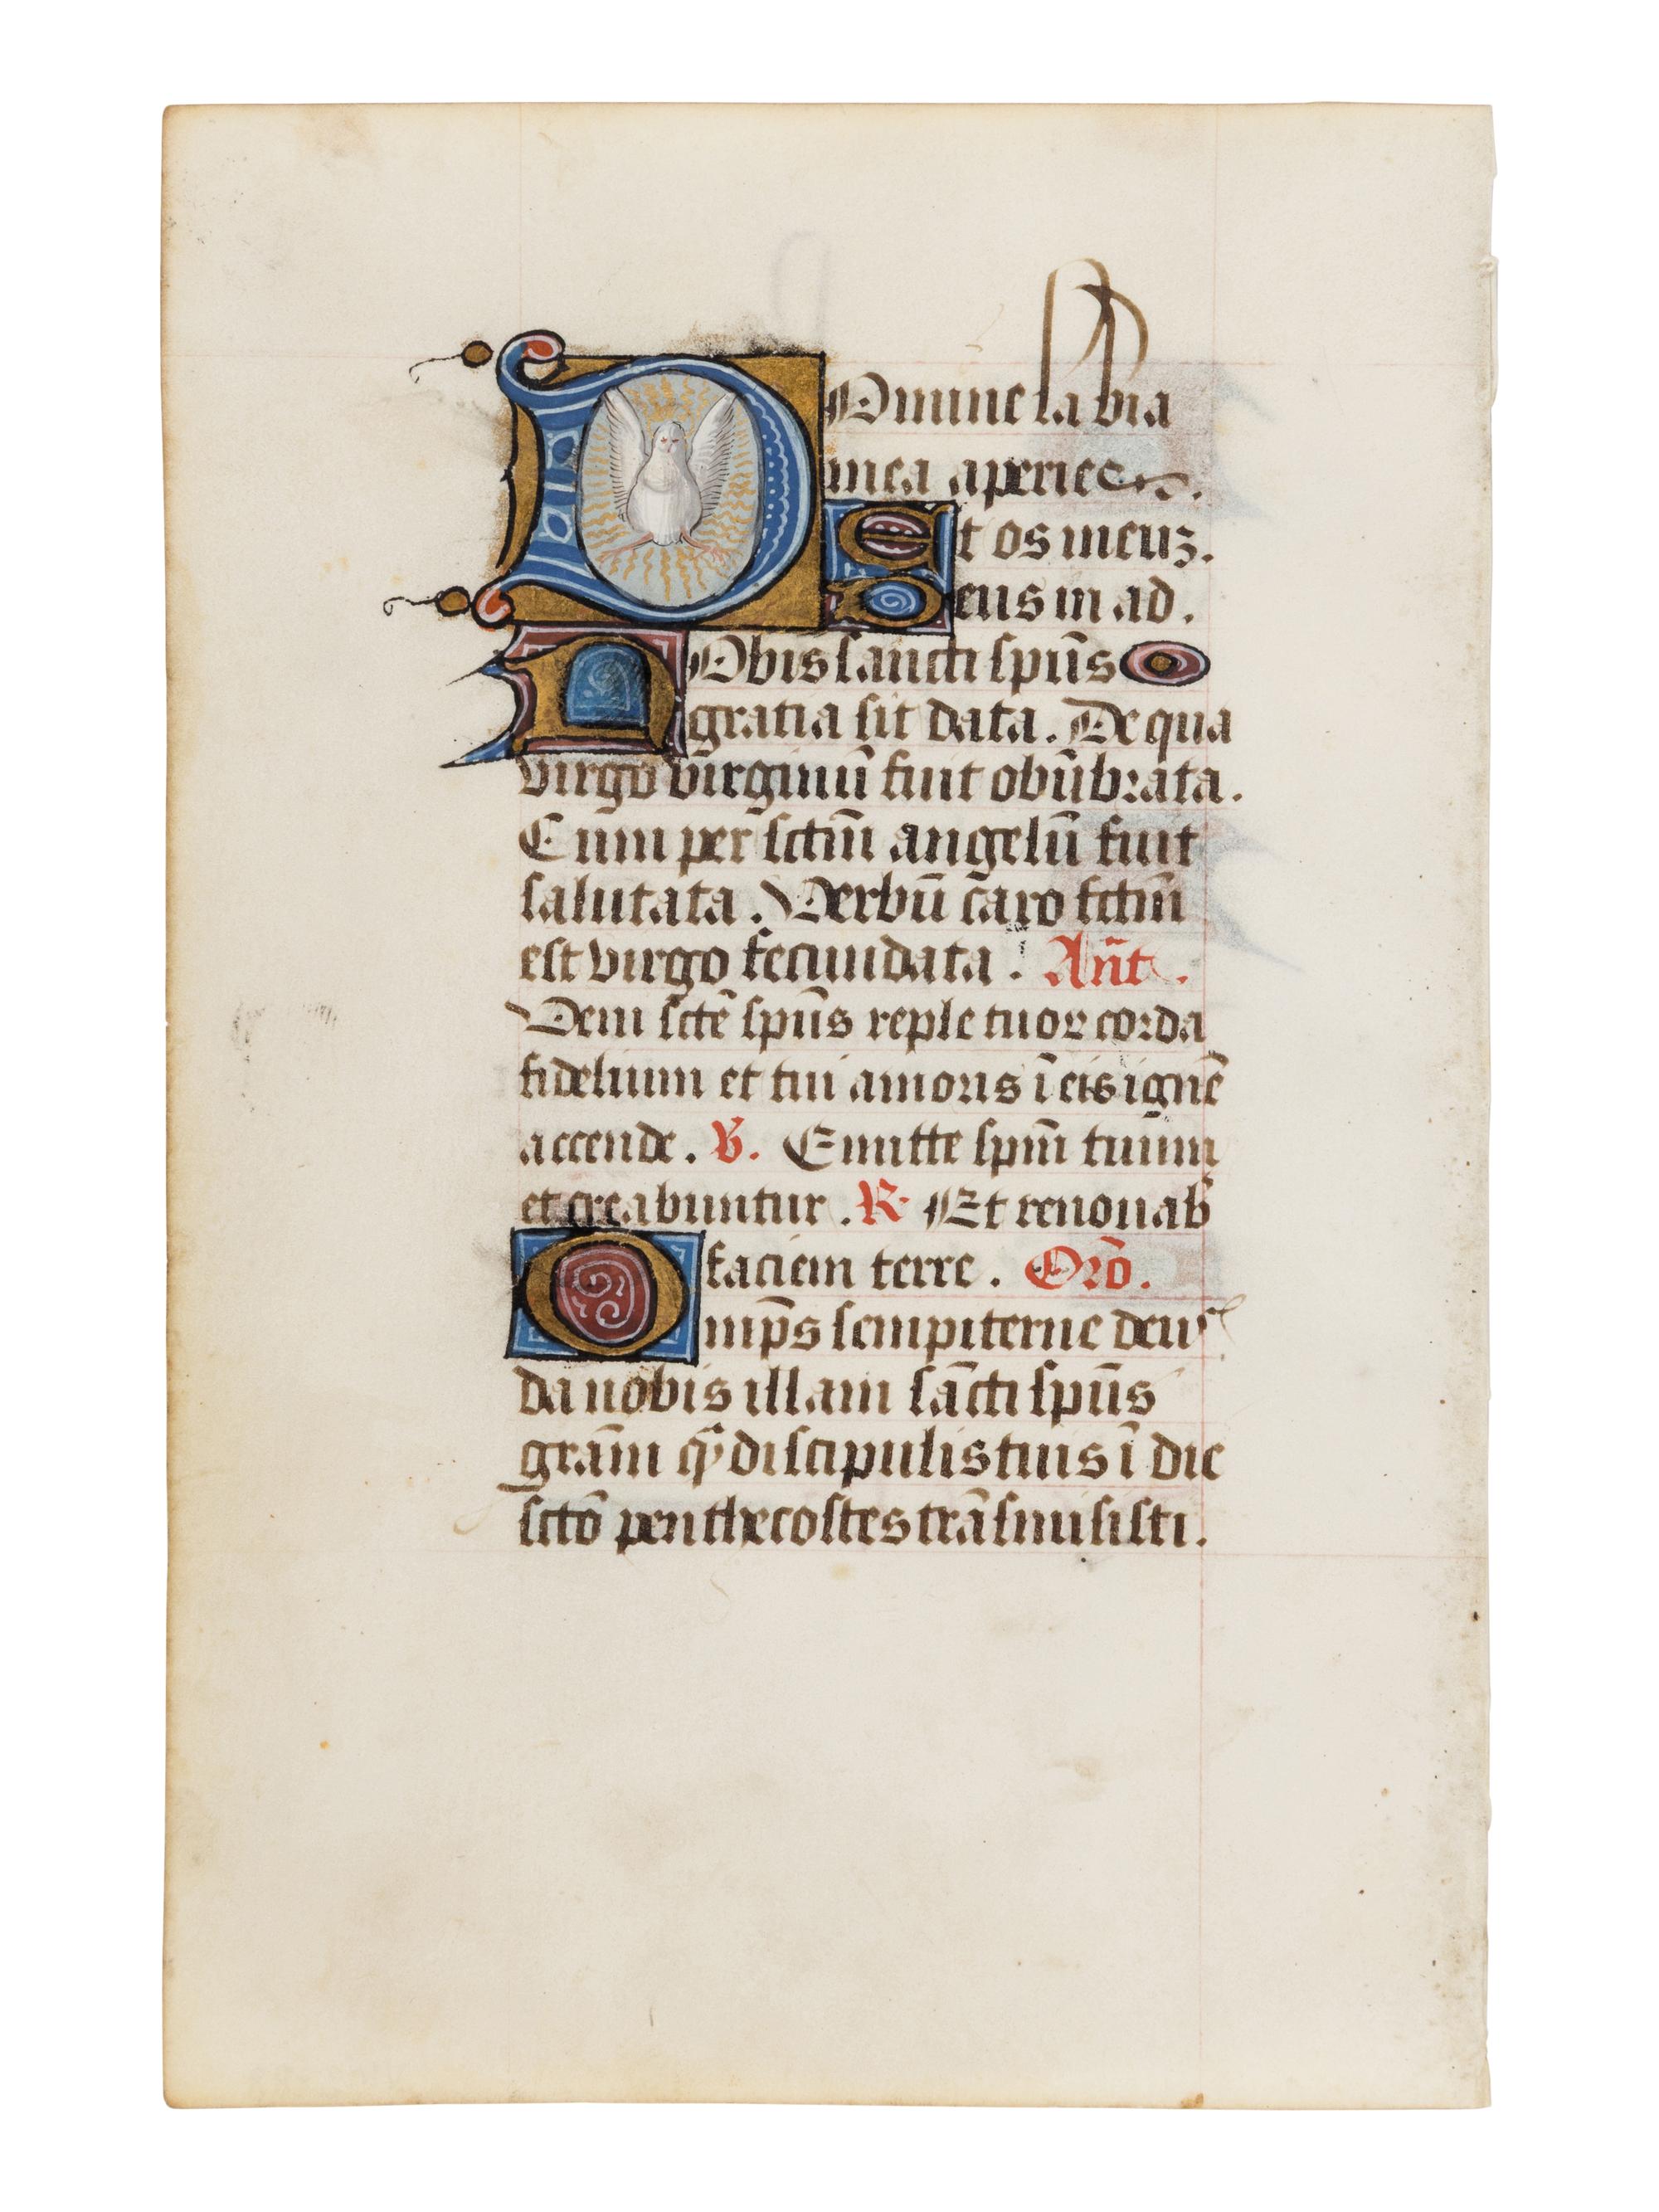 DOmine labia
mea aperies.
Et os meuz.
Deus in ad.
NObis sancti spūs
gratia sit data. De qua
virgo virginū fuit obūbrata.
Cum per sctm̄ angelū fuit
salutata. Verbū caro fctm̄
est virgo fecundata. Ant̄.
Veni sctē spūs reple tuoꝝ corda
fidelium et tui amoris ī eis ignē
accende. ℣. Emitte spm̄ tuum
et creabuntur. ℟ Et renouab̄
faciem terre. Orō.
Omp̄s sempiterne deus
da nobis illam sācti spūs
grām qͣ discipulis tuis ī die
sctō penthecostes trāsmisisti.